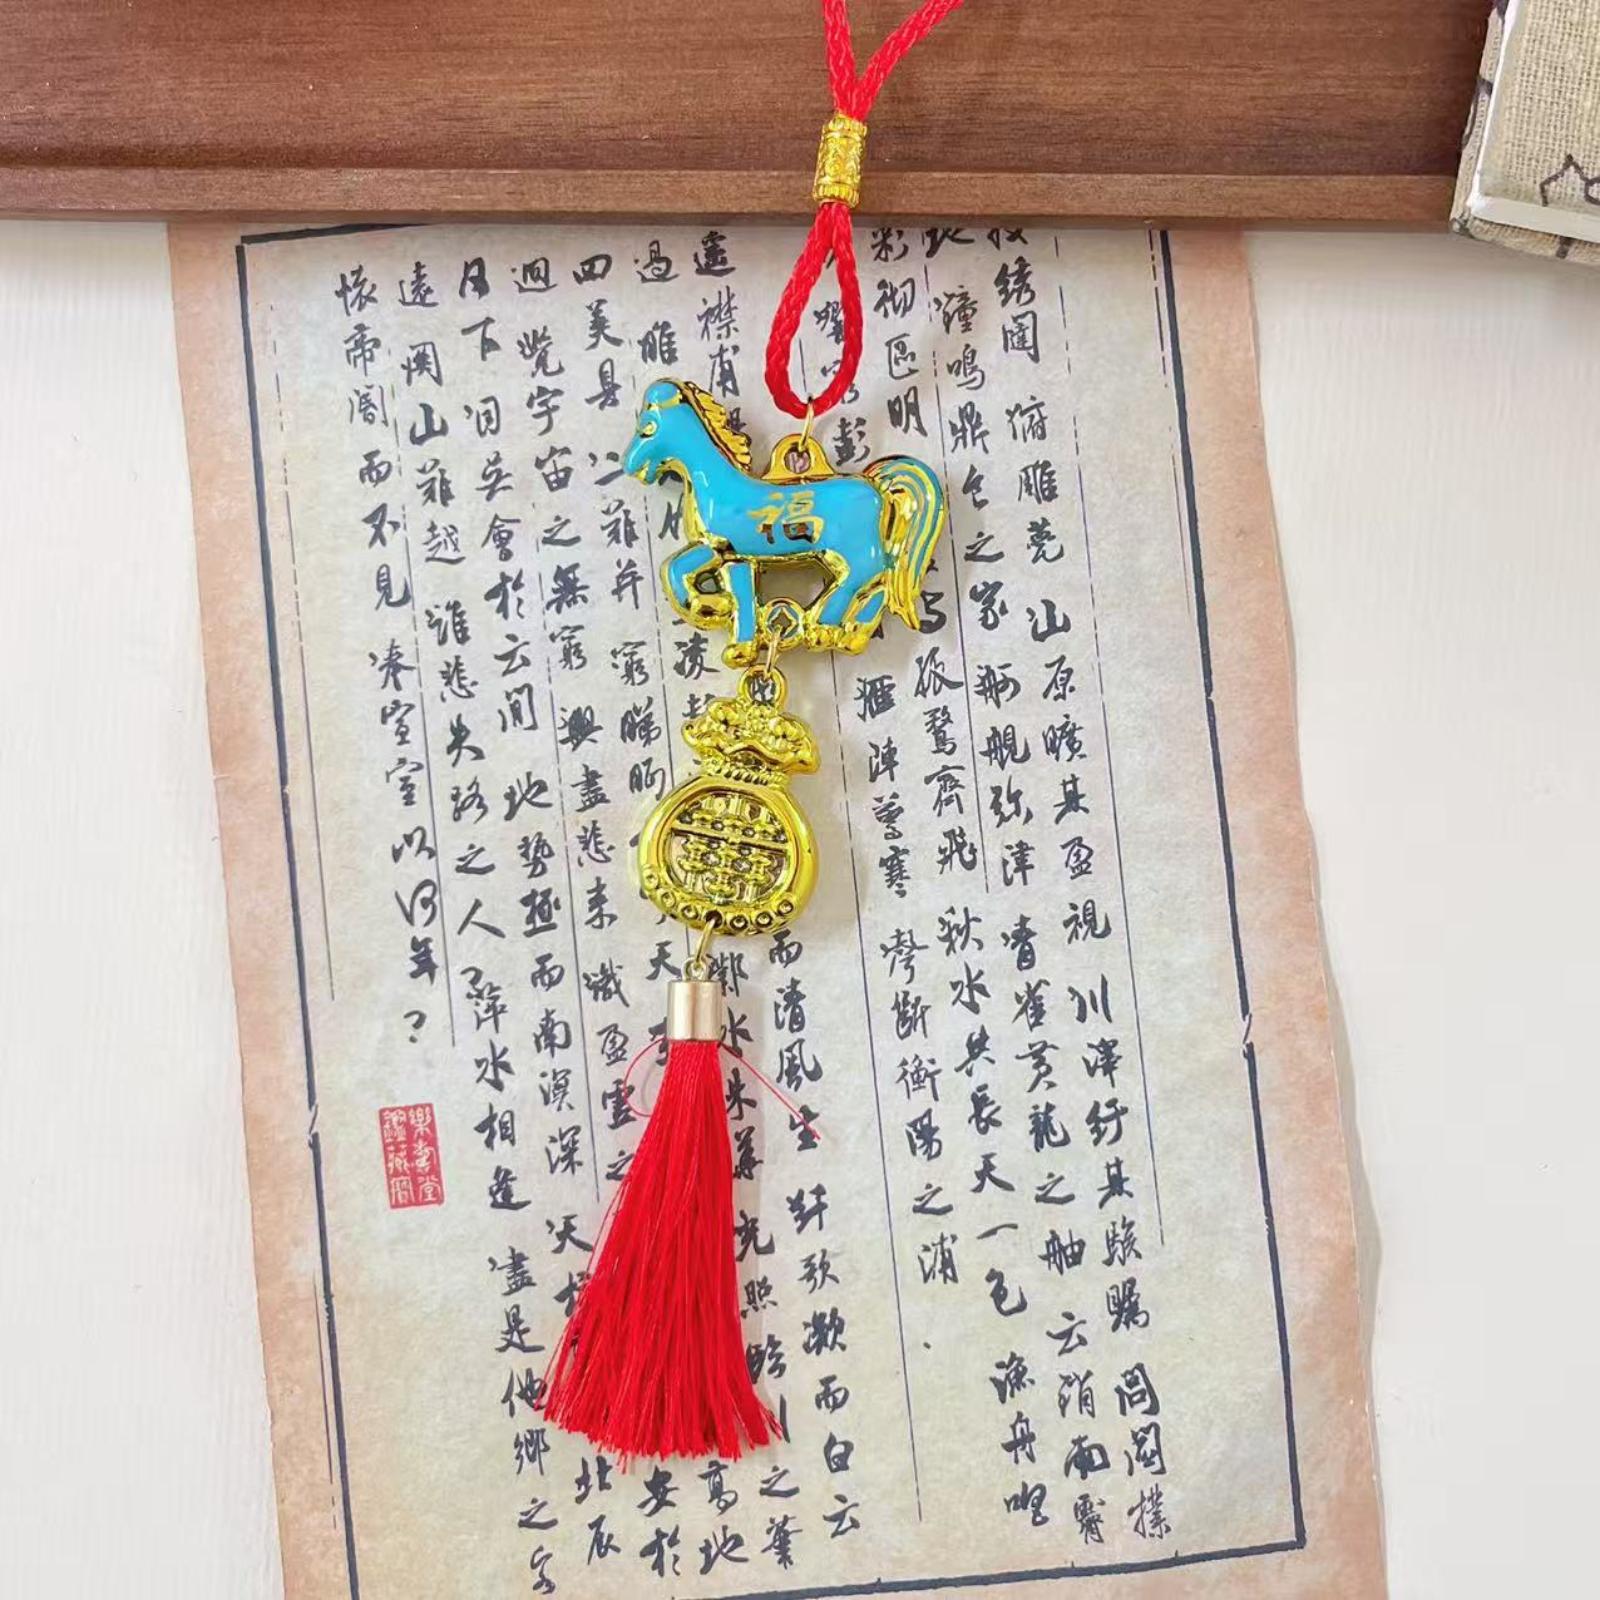 福
绣闥 俯雕甍 山原曠其盈視 川澤紆其駭矚 閭閻撲
地 鐘鳴鼎食之家 舸艦弥津 青雀黄龍之舳 云銷雨霽
彩彻區明 与孤鶩齊飛 秋水共長天一色 漁舟唱
響窮彭 雁陣驚寒 聲斷衡陽之浦
遥襟甫 而清風生 纤歌凝而白云
遏 睢 凌 鄴水朱華 光照臨川之筆
四美具 二難并 窮睇眄 天 高地
迥 覺宇宙之無窮 興盡悲来 識盈虚之 安於
日下 目吳會於云間 地勢極而南溟深 天柱 北辰
遠 關山難越 誰悲失路之人 萍水相逢 盡是他鄉之客
懷帝閽而不見 奉宣室以何年?
樂壽堂
鑑藏寶